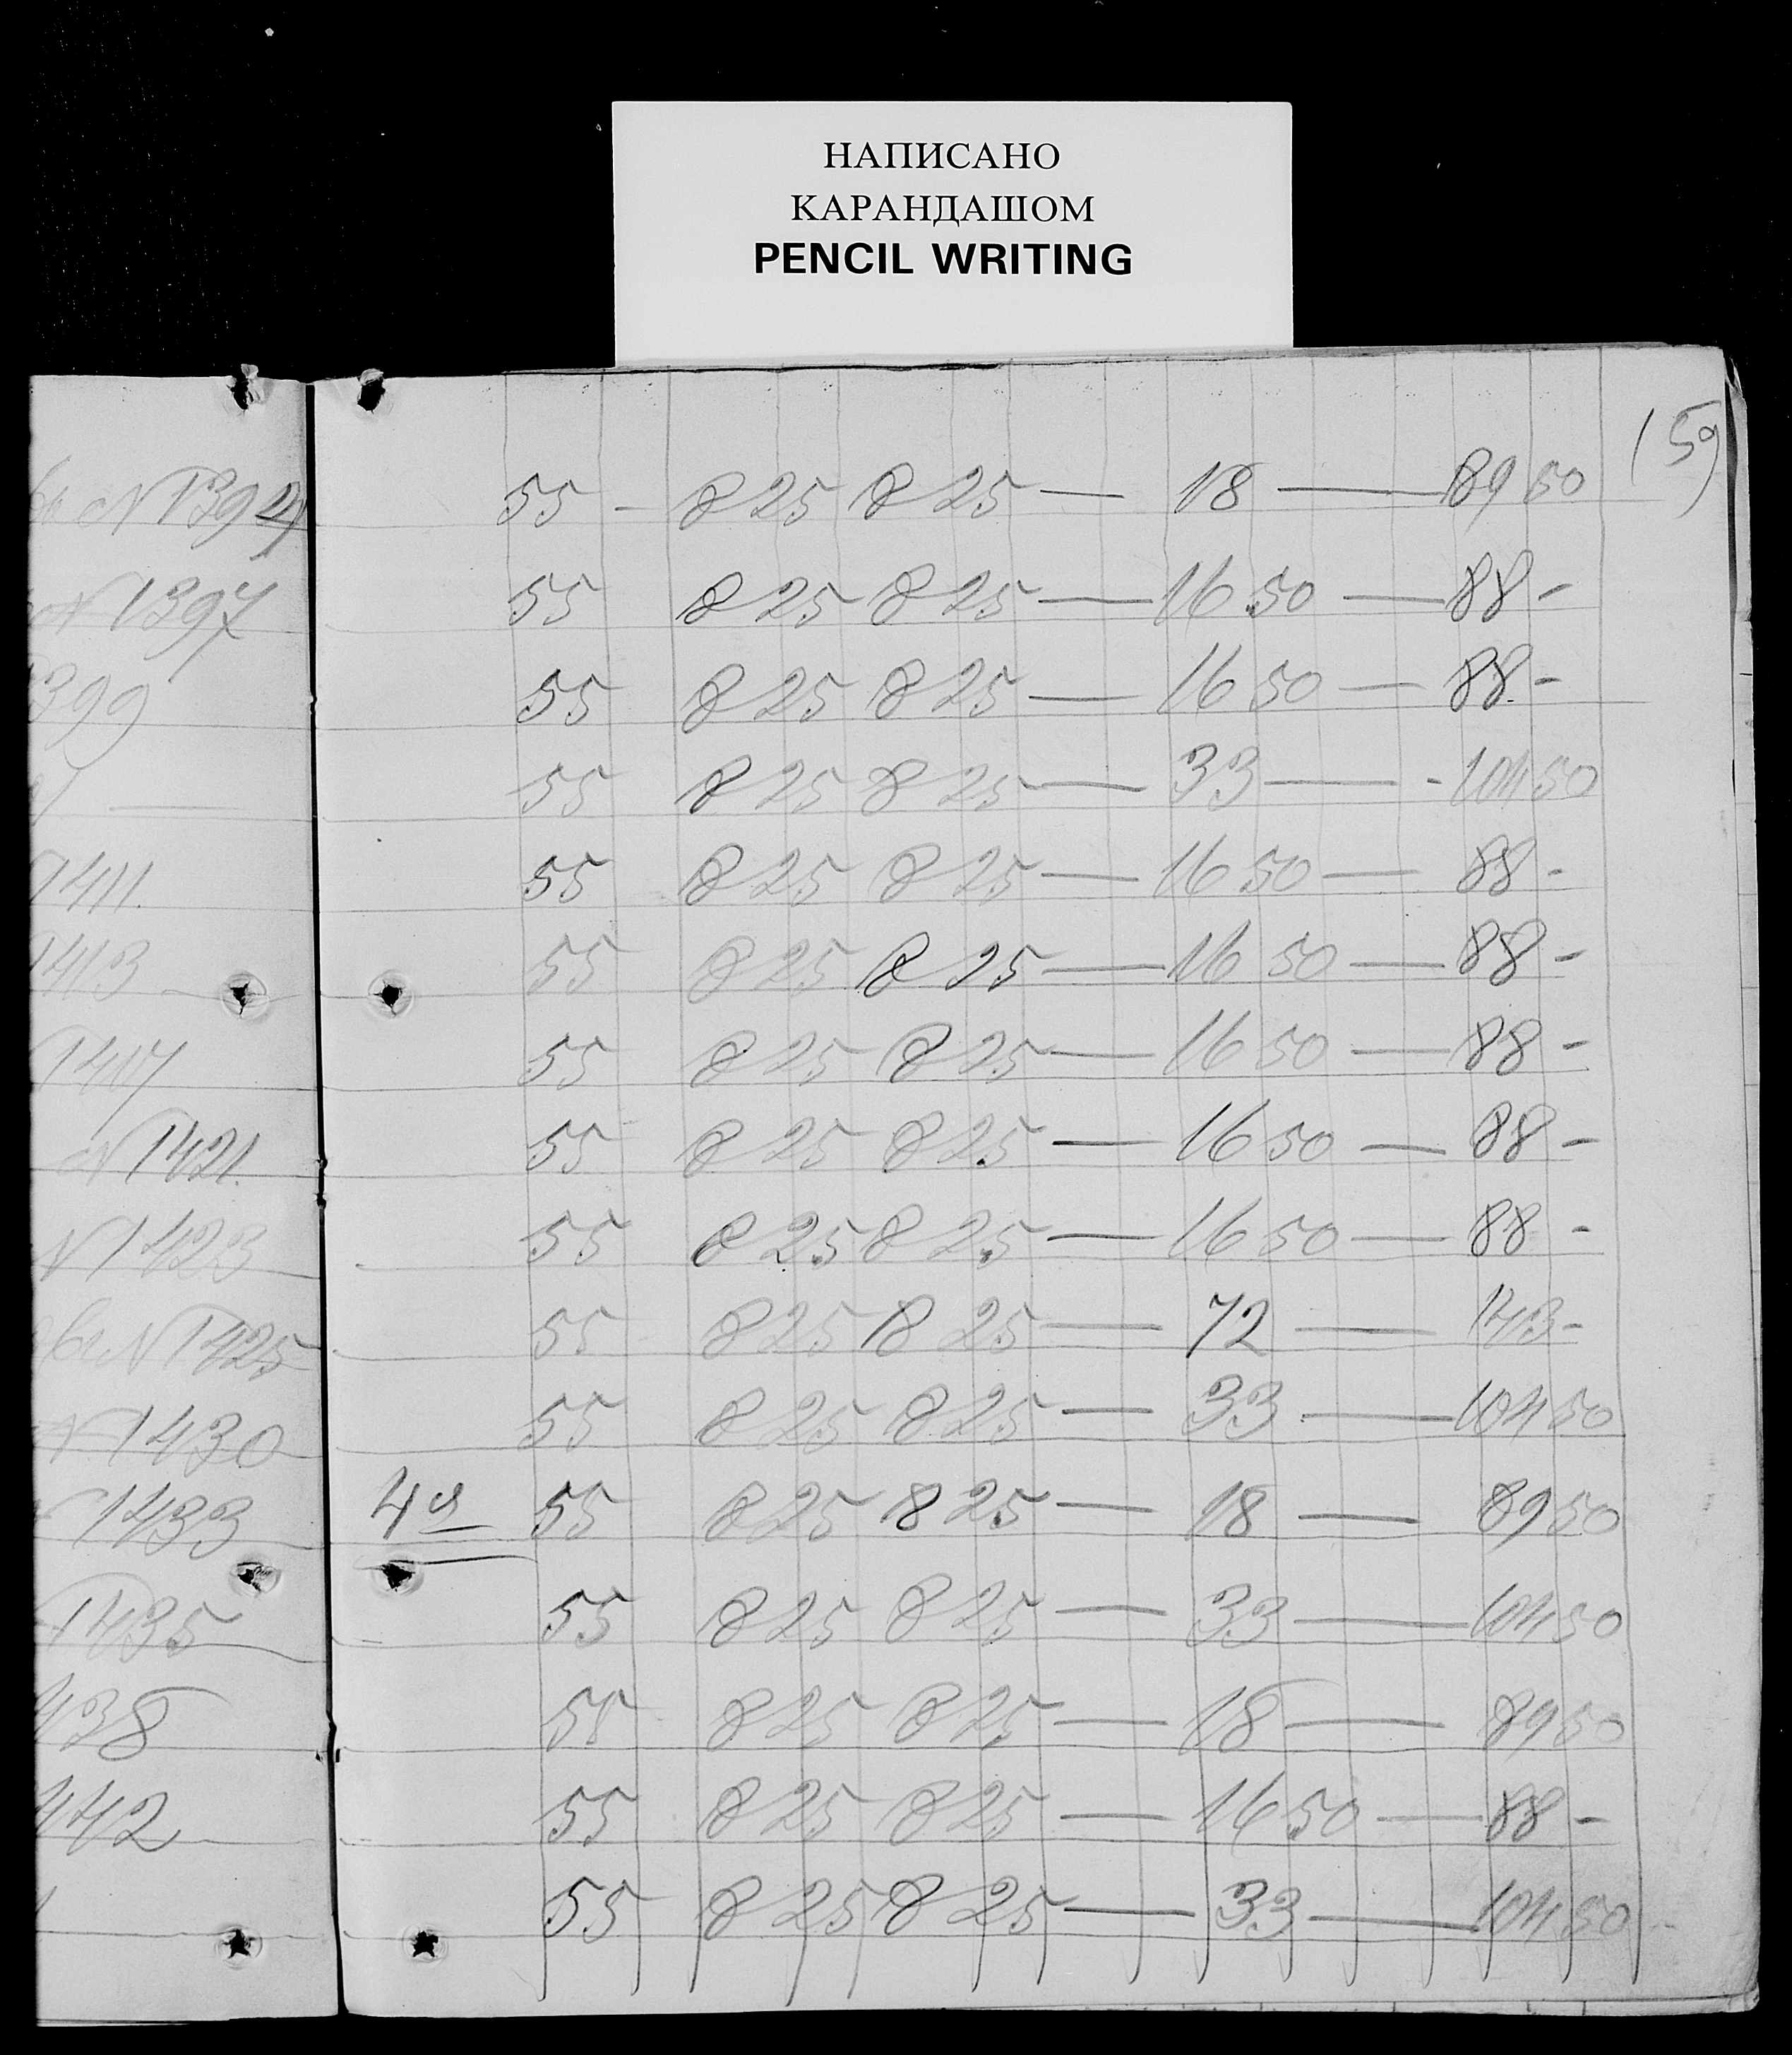 НАПИСАНО
КАРАНДАШОМ
PENCIL WRITING
(59
N 1394 55 - 8 25 8 25 — 18 — 89 50
N 1397 55 8 25 8 25 — 16 50 — 88 -
399 55 8 25 8 25 — 16 50 — 88 -
— 55 8 25 8 25 — 33 — - 104 50
1411. 55 8 25 8 25 — 16 50 — 88 -
1413 55 8 25 8 25 — 16 50 — 88 -
1417 55 8 25 8 25 — 16 50 — 88 -
N 1421. 55 8 25 8 25 — 16 50 — 88 -
N 1423 55 8 25 8 25 — 16 50 — 88 -
N 1425 55 8 25 8 25 — 72 — 143 -
N 1430 55 8 25 8 25 — 33 — 104 50
1433 55 8 25 8 25 — 18 — 89 50
1435 55 8 25 8 25 — 33 — 104 50
438 55 8 25 8 25 — 18 — 89 50
442 55 8 25 8 25 — 16 50 — 88 -
55 8 25 8 25 — 33 — 104 50